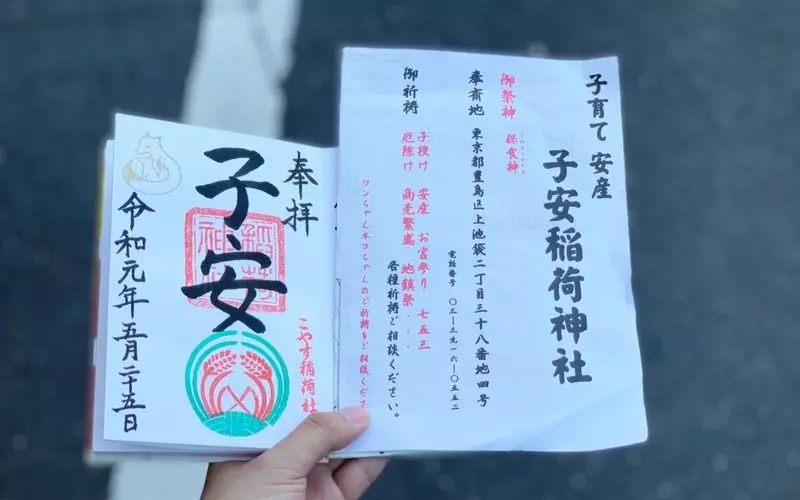 子育て 安産
子安稲荷神社
御祭神 保食神
奉斎地 東京都豊島区上池袋二丁目三十八番地四号
電話番号 〇三-二九一六-〇五五二
御祈祷 子授け 安産 お宮参り 七五三
厄除け 商売繁盛 地鎮祭、、、
各種祈祷ご相談ください。
ワンちゃんネコちゃんのご祈祷もご相談くださ
奉拝
子安
こやす稲荷社
令和元年五月二十五日